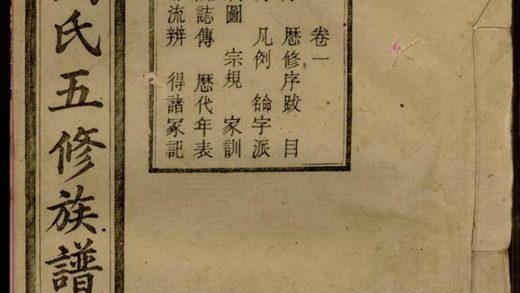 卷一
曆修序跋 目
凡例 字派
圖 宗規 家訓
誌傳 歷代年表
流辨 得諸冢記
氏五修族譜